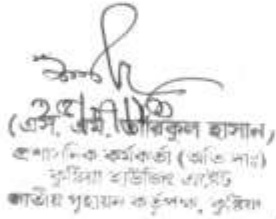 (এস, এম, তারিকুল হাসান)
প্রশাসনিক কর্মকর্তা (অতিঃ দাঃ)
কুষ্টিয়া হাউজিং এস্টেট
জাতীয় গৃহায়ন কর্তৃপক্ষ, কুষ্টিয়া